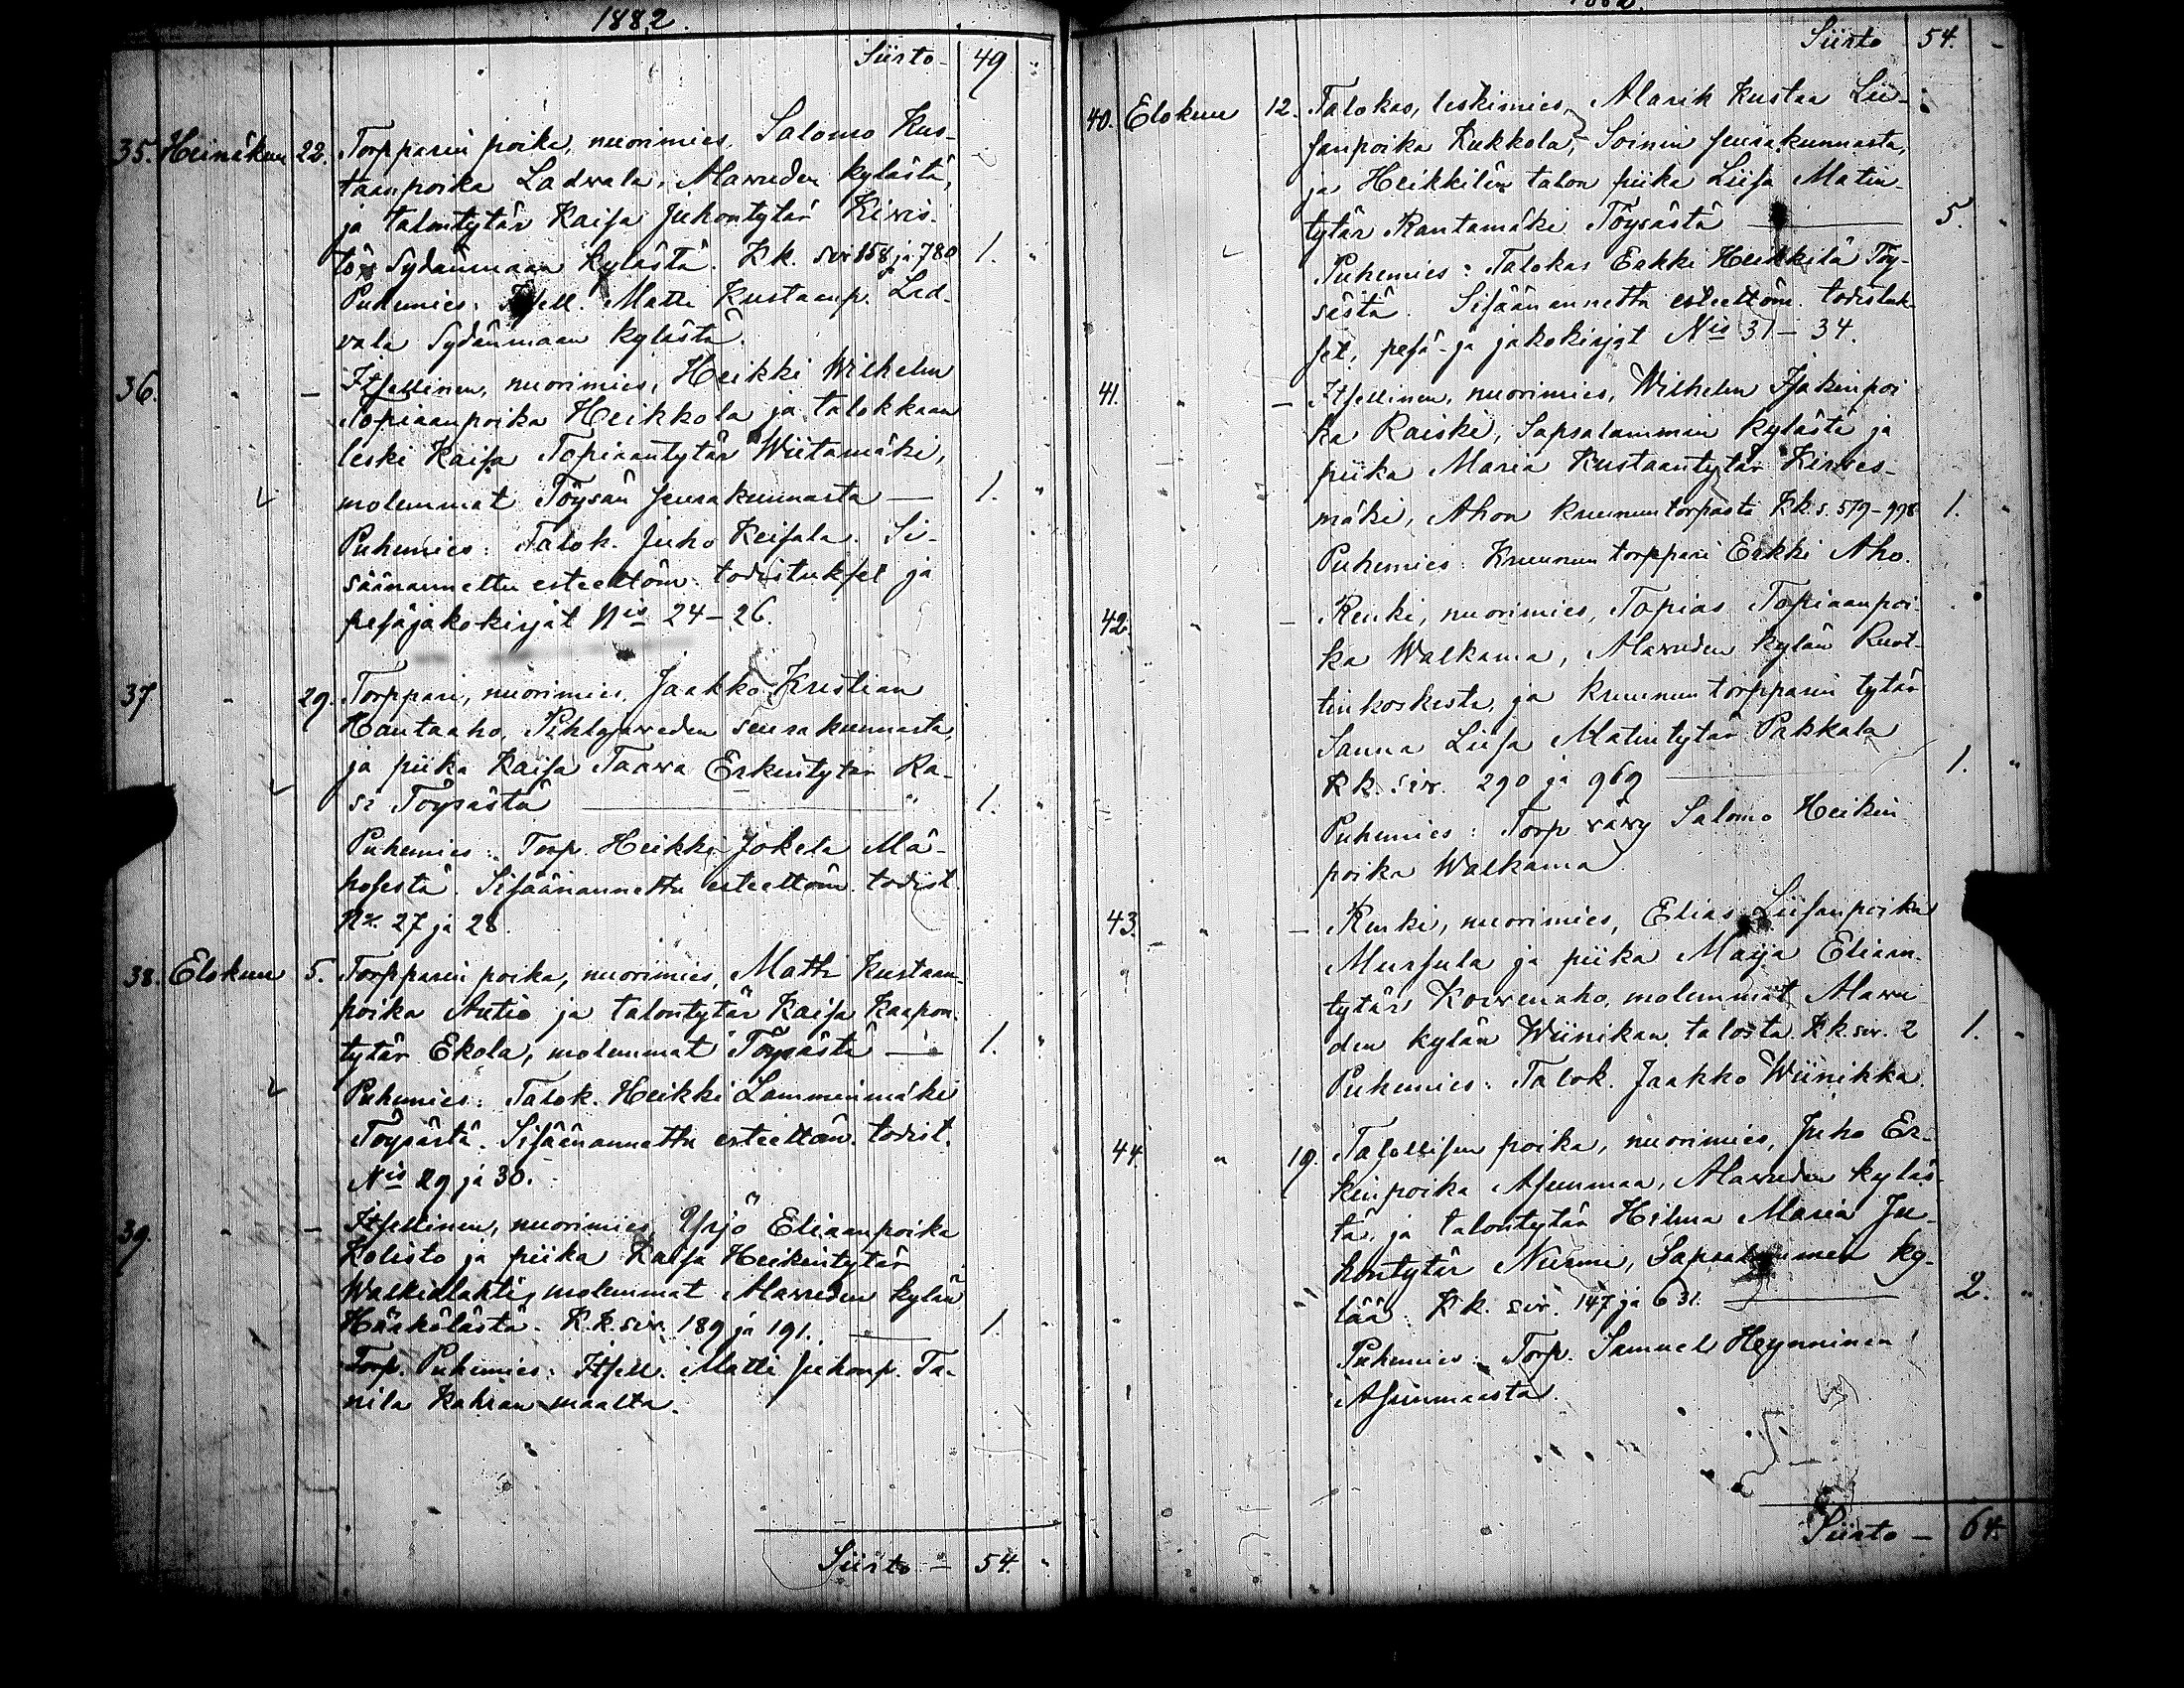 1882.
Siirto - 49
35. Heinäkuu 22. Torpparin poika, nuorimies, Salomo Kus-
taanpoika Ladvala, Alavuden kylästä,
ja talontytär Kaisa Juhontytär Kivis-
tö, Sydänmaan kylästä. Kk. siv 858 ja 780 1. "
Puhemies: Itsell. Matti Kustaanp. Lad-
vala Sydänmaan kylästä.
36. " — Itsellinen, nuorimies, Heikki Wilhelm
Topiaanpoika Heikkola ja talokkaan
leski Kaisa Topiaantytär Wiitamäki,
molemmat Töysän seurakunnasta — 1. "
Puhemies: Talok. Juho Keisala. Si-
säänannettu esteettöm. todistukset ja
pesäjakokirjat Nis 24-26.
37 " 29. Torppari, nuorimies, Jaakko Kristian
Hautaaho, Pihlajaveden seurakunnasta,
ja piika Kaisa Taava Erkintytär Ra-
si Töysästä — 1. "
Puhemies: Torp. Heikki Jokela Mä-
hosestä. Sisäänannettu esteettöm. todist.
No. 27 ja 28.
38. Elokuu 5. Torpparin poika, nuorimies, Matti Kustaan-
poika Autio ja talontytär Kaisa Kaapon-
tytär Ekola, molemmat Töysästä — 1. "
Puhemies: Talok. Heikki Lamminmäki
Töysästä. Sisäänannettu esteettöm. todist.
Nis 29 ja 30.
39. " — Itsellinen, nuorimies Yrjö Eliaanpoika
Kolisto ja piika Kaisa Heikintytär
Walkialahti, molemmat Alavuden kylän
Hääkölästä. K.k. siv. 189 ja 191. — 1. "
Torp. Puhemies: Itsell. Matti Juhonp. Ta-
nila Kahran maalta.
Siirto — 54. "
1882.
Siirto - 54. -
40. Elokuu 12. Talokas, leskimies, Marik Kustaa Lii-
sanpoika Kukkola, Soinin seurakunnasta,
ja Heikkilän talon piika Liisa Matin-
tytär Rantamäki Töysästä — 5. "
Puhemies: Talokas Erkki Heikkilä Töy-
sästä. Sisäänannettu esteettöm. todistuk-
set, pesä- ja jakokirjat Nis 31-34.
41. " — Itsellinen, nuorimies, Wilhelm Isakinpoi
ka Raiski, Sapsalammin kylästä ja
piika Maria Kustaantytär Kirves-
mäki, Ahon kruununtorpasta Kk s. 579-998 1. "
Puhemies: Kruunun torppari Erkki Aho.
42. " — Renki, nuorimies, Topias Topiaanpoi-
ka Walkama, Alavuden kylän Ruot-
tinkoskesta, ja kruunun torpparin tytär
Sanna Liisa Matintytär Pakkala
Kk. siv. 290 ja 969 — 1. "
Puhemies: Torp vävy Salomo Heikin
poika Walkama.
43. " — Renki, nuorimies, Elias Liisanpoika
Mursula ja piika Maija Eliaan-
tytär Koivenaho, molemmat Alavu-
den kylän Wiinikan talosta Kk siv. 2 1. "
Puhemies: Talok. Jaakko Wiinikka.
44. " 19. Talollisen poika, nuorimies, Juho Er-
kinpoika Asunmaa, Alavuden kyläs-
tä, ja talontytär Hilma Maria Ju-
hontytär Nurmi, Sapsalammin ky-
lää. Kk. siv. 147 ja 631. — 2. "
Puhemies: Torp. Samuel Heynninen
Asunmaasta.
Siirto — 64.